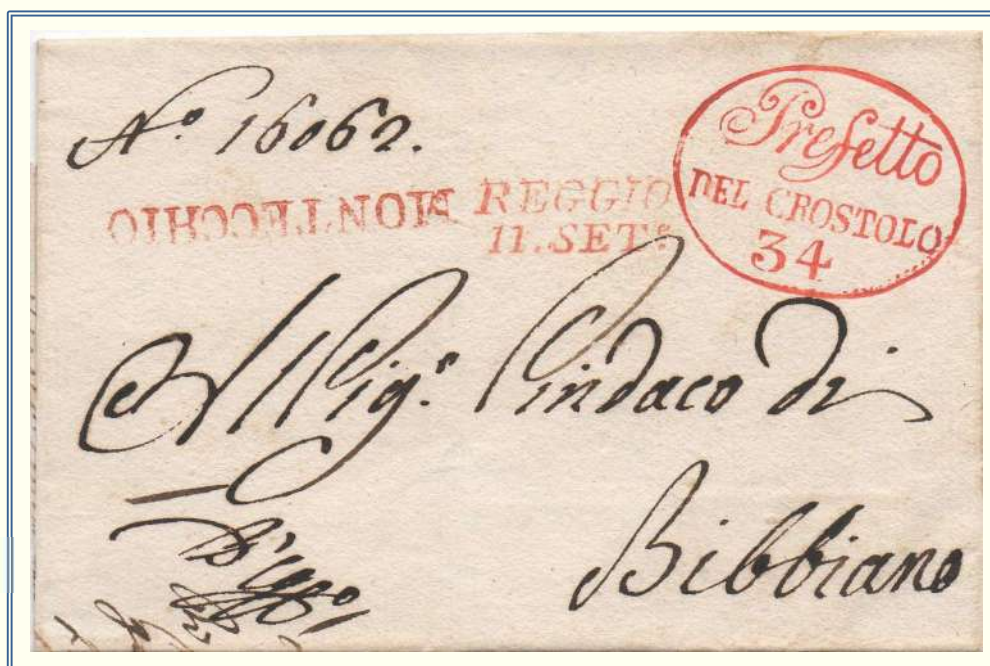 N.º 16062.
MONTECCHIO
REGGIO
11. SET.e
Prefetto
DEL CROSTOLO
34
Al Sig.e Sindaco di
Bibbiano